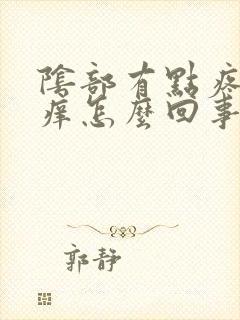 陰部有點疼
痒怎麼回事
郭靜